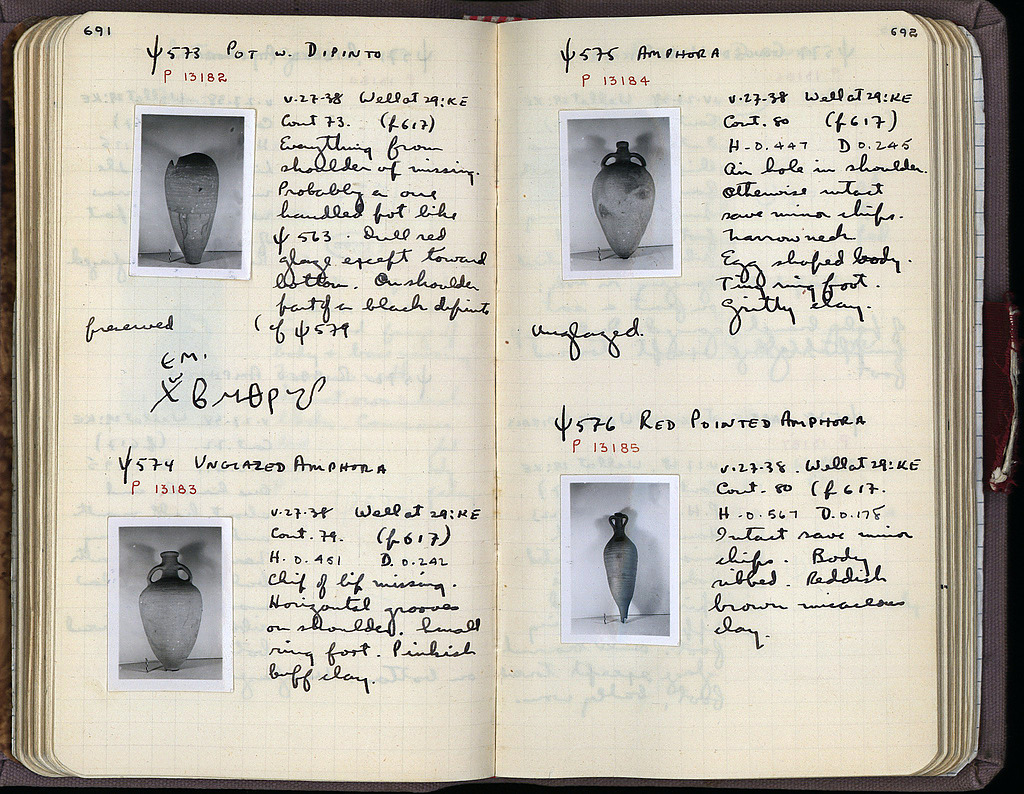 691
ψ573 POT W. DIPINTO
P 13182
V·27·38 Well at 29:KE
Cont 73. (f 617)
Everything from
shoulder up missing.
Probably a one
handled pot like
ψ 563. Dull red
glaze except toward
bottom. On shoulder
part of a black dipinto
preserved (cf ψ579
ψ574 UNGLAZED AMPHORA
P 13183
V·27·38 Well at 29:KE
Cont. 79. (f 617)
H. 0.461 D. 0.242
Chip of lip missing.
Horizontal grooves
on shoulder. Small
ring foot. Pinkish
buff clay.
692
ψ575 AMPHORA
P 13184
V·27·38 Well at 29:KE
Cont. 80 (f 617)
H-0.447 D 0.245
Air hole in shoulder.
Otherwise intact
save minor chips.
Narrow neck
Egg shaped body.
Tiny ring foot.
Gritty clay.
Unglazed.
ψ576 RED POINTED AMPHORA
P 13185
V·27·38. Well at 29:KE
Cont. 80 (f 617.
H-0.567 D.0.178
Intact save minor
chips. Body
ribbed. Reddish
brown micaceous
clay.